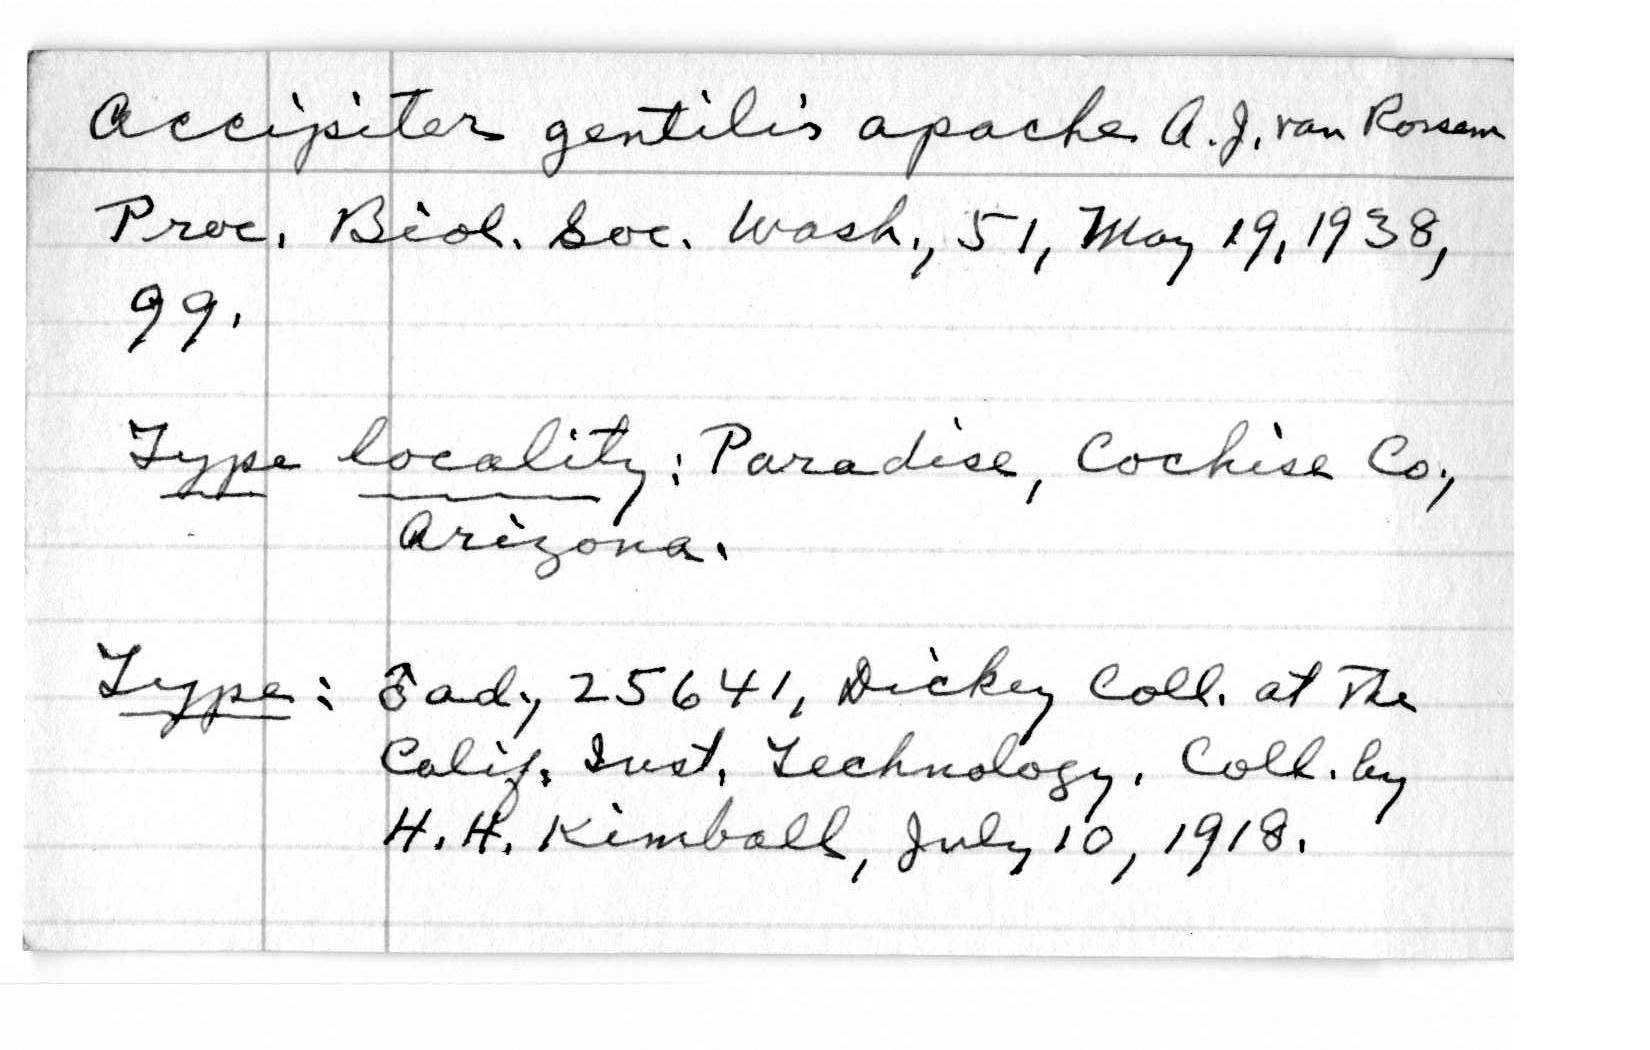 Accipiter gentilis apache A.J. van Rossem
Proc. Biol. Soc. Wash., 51, May 19, 1938,
99.
Type locality: Paradise, Cochise Co.,
Arizona.
Type: ♂ ad., 25641, Dickey Coll. at The
Calif. Inst. Technology. Coll. by
H.H. Kimball, July 10, 1918.